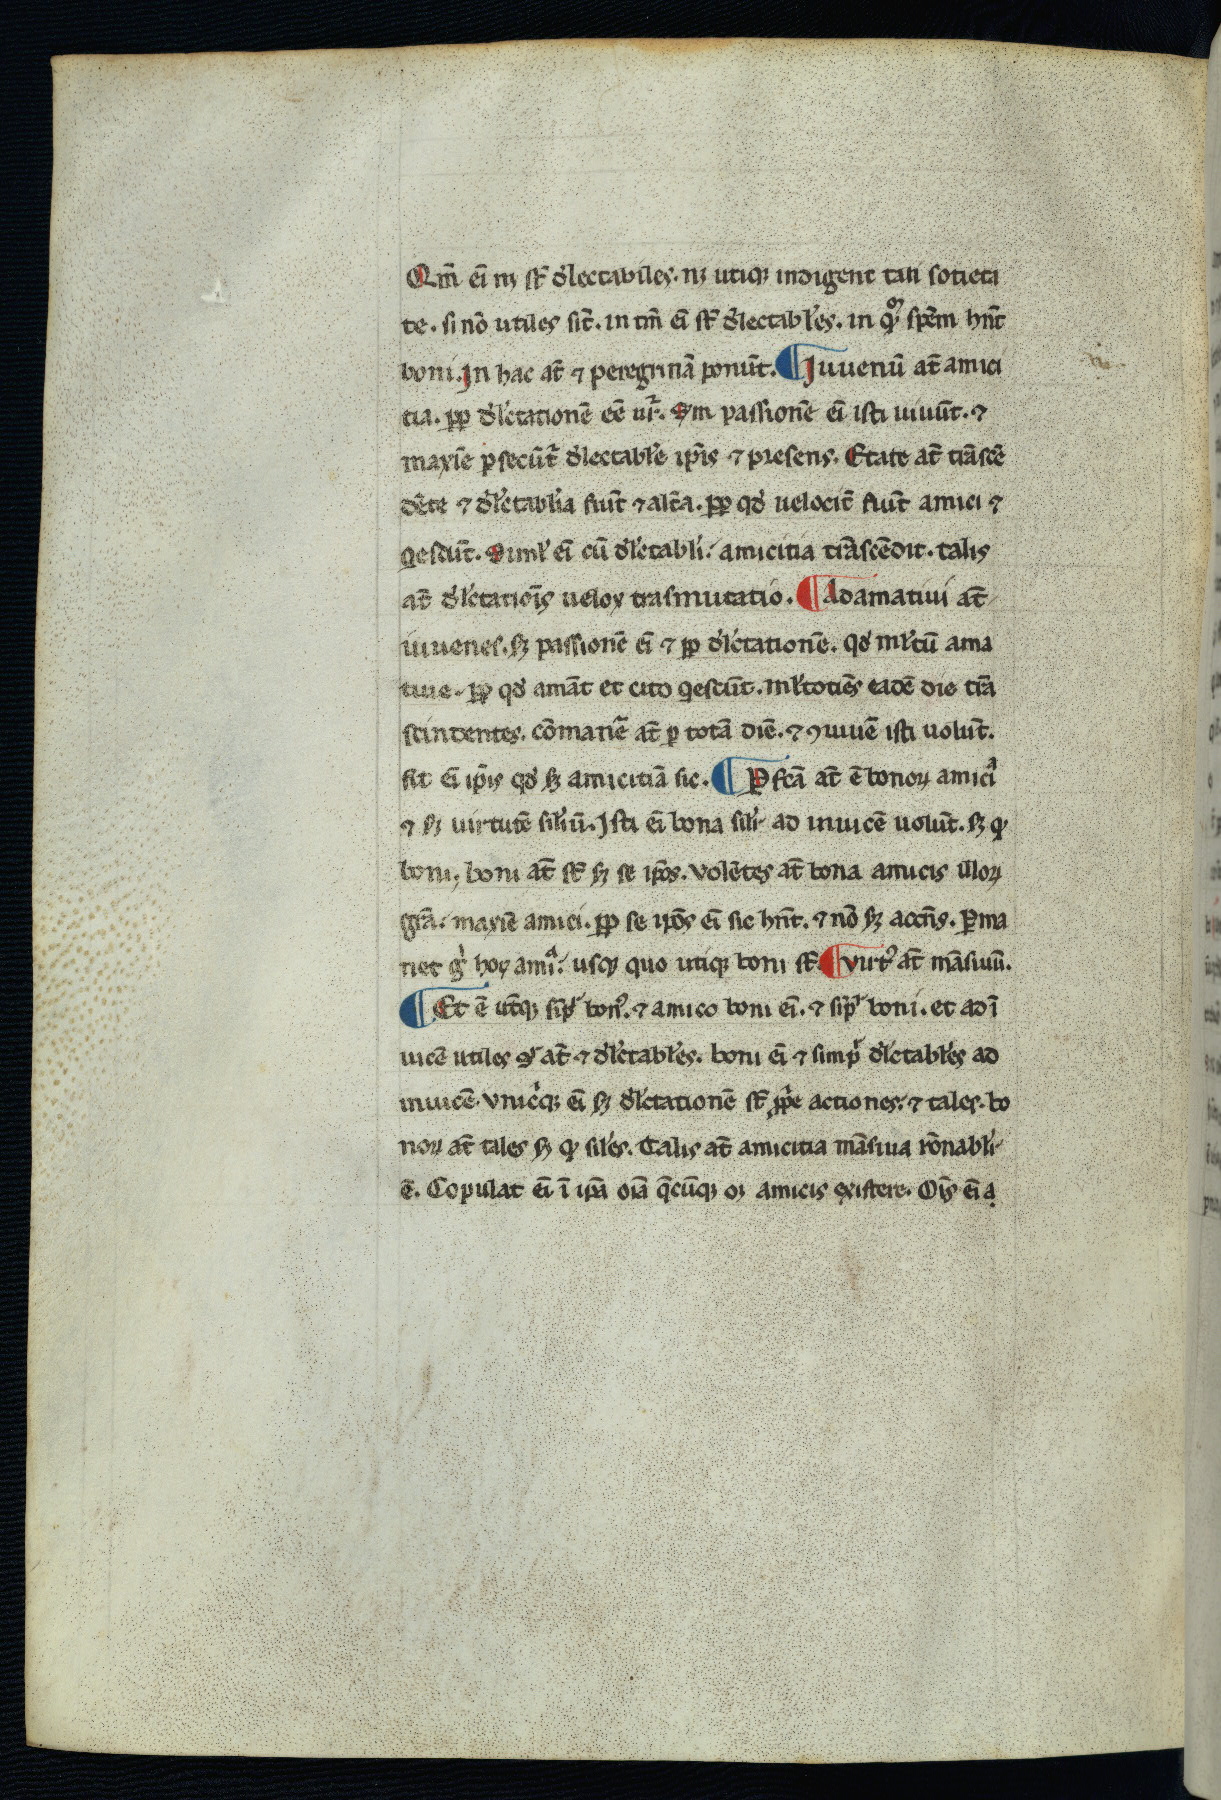 Qm̄ eī nꝫ st̄ dl̓ectabiles. nꝫ utiqꝫ indigent tali sotieta
te. si nō utiles sīt. in tm̄ eī st̄ dl̓ectabl̓es. in qͦꝝ spēm hn̄t
boni. In hac at̄ ⁊ peregrinā ponūt. ¶ Iuuenū at̄ amici
tia. ꝓp dl̓ctationē eē ur̄. Sm passionē eī isti uiuūt. ⁊
maxīe ꝓsecūt̄ dl̓ectabl̓e ip̄is ⁊ presens. Etate at̄ trāscē
dēte ⁊ dl̓ctabl̓ia fiūt ⁊ alt̄a. ꝓp qđ uelocit̄ fiūt amici ⁊
ꝗescūt. Siml̓ eī cū dl̓ectabli. amicitia trāscēdit. talis
at̄ dl̓ctatiōis uelox trasmutatio. ¶ Adamatiui at̄
iuuenes. ẜꝫ passionē eī ⁊ ꝓp dl̓ctationē. qđ ml̓tū ama
tiue. ꝓp qđ amāt et cito ꝗescūt. ml̓totiēs eadē die trā
scindentes. cōmanē at̄ ꝑ totā diē. ⁊ ꝯuiuē isti uolūt.
fit eī ip̄is qđ ẜꝫ amicitiā sic. ¶ Pfcā at̄ ē bonoꝝ amiciᵃ
⁊ ẜꝫ uirtutē sil̓iū. Isti eī bona sil̓i ad inuicē uolūt. ẜꝫ ꝙ
boni. boni at̄ st̄ ẜꝫ se ip̄os. volētes at̄ bona amicis illoꝝ
grā. maxīe amici. ꝓp se ip̄os eī sic hn̄t. ⁊ nō ẜꝫ accn̄s. Ꝑma
net gͥ hoꝝ amiᵃ. usqꝫ quo utiqꝫ boni st̄. ¶ virtꝰ at̄ māsiuū.
¶ Et ē ut̄qꝫ simpl̓ bonꝰ. ⁊ amico boni eī. ⁊ simpl̓ boni. et ad ī
uicē utiles ꝙ at̄ ⁊ dl̓ectabl̓es. boni eī ⁊ simpl̓ dl̓ctabl̓es ad
inuicē. vnicͥqꝫ eī ẜꝫ dl̓ctationē st̄ ꝓpͥe actiones. ⁊ tales. bo
noꝝ at̄ tales ẜꝫ ꝙ sil̓es. Talis at̄ amicitia māsiua rōnabli
ē. Copulat eī ī ip̄a oīa q̄cūqꝫ oꝫ amicis existere. Oīs eī a